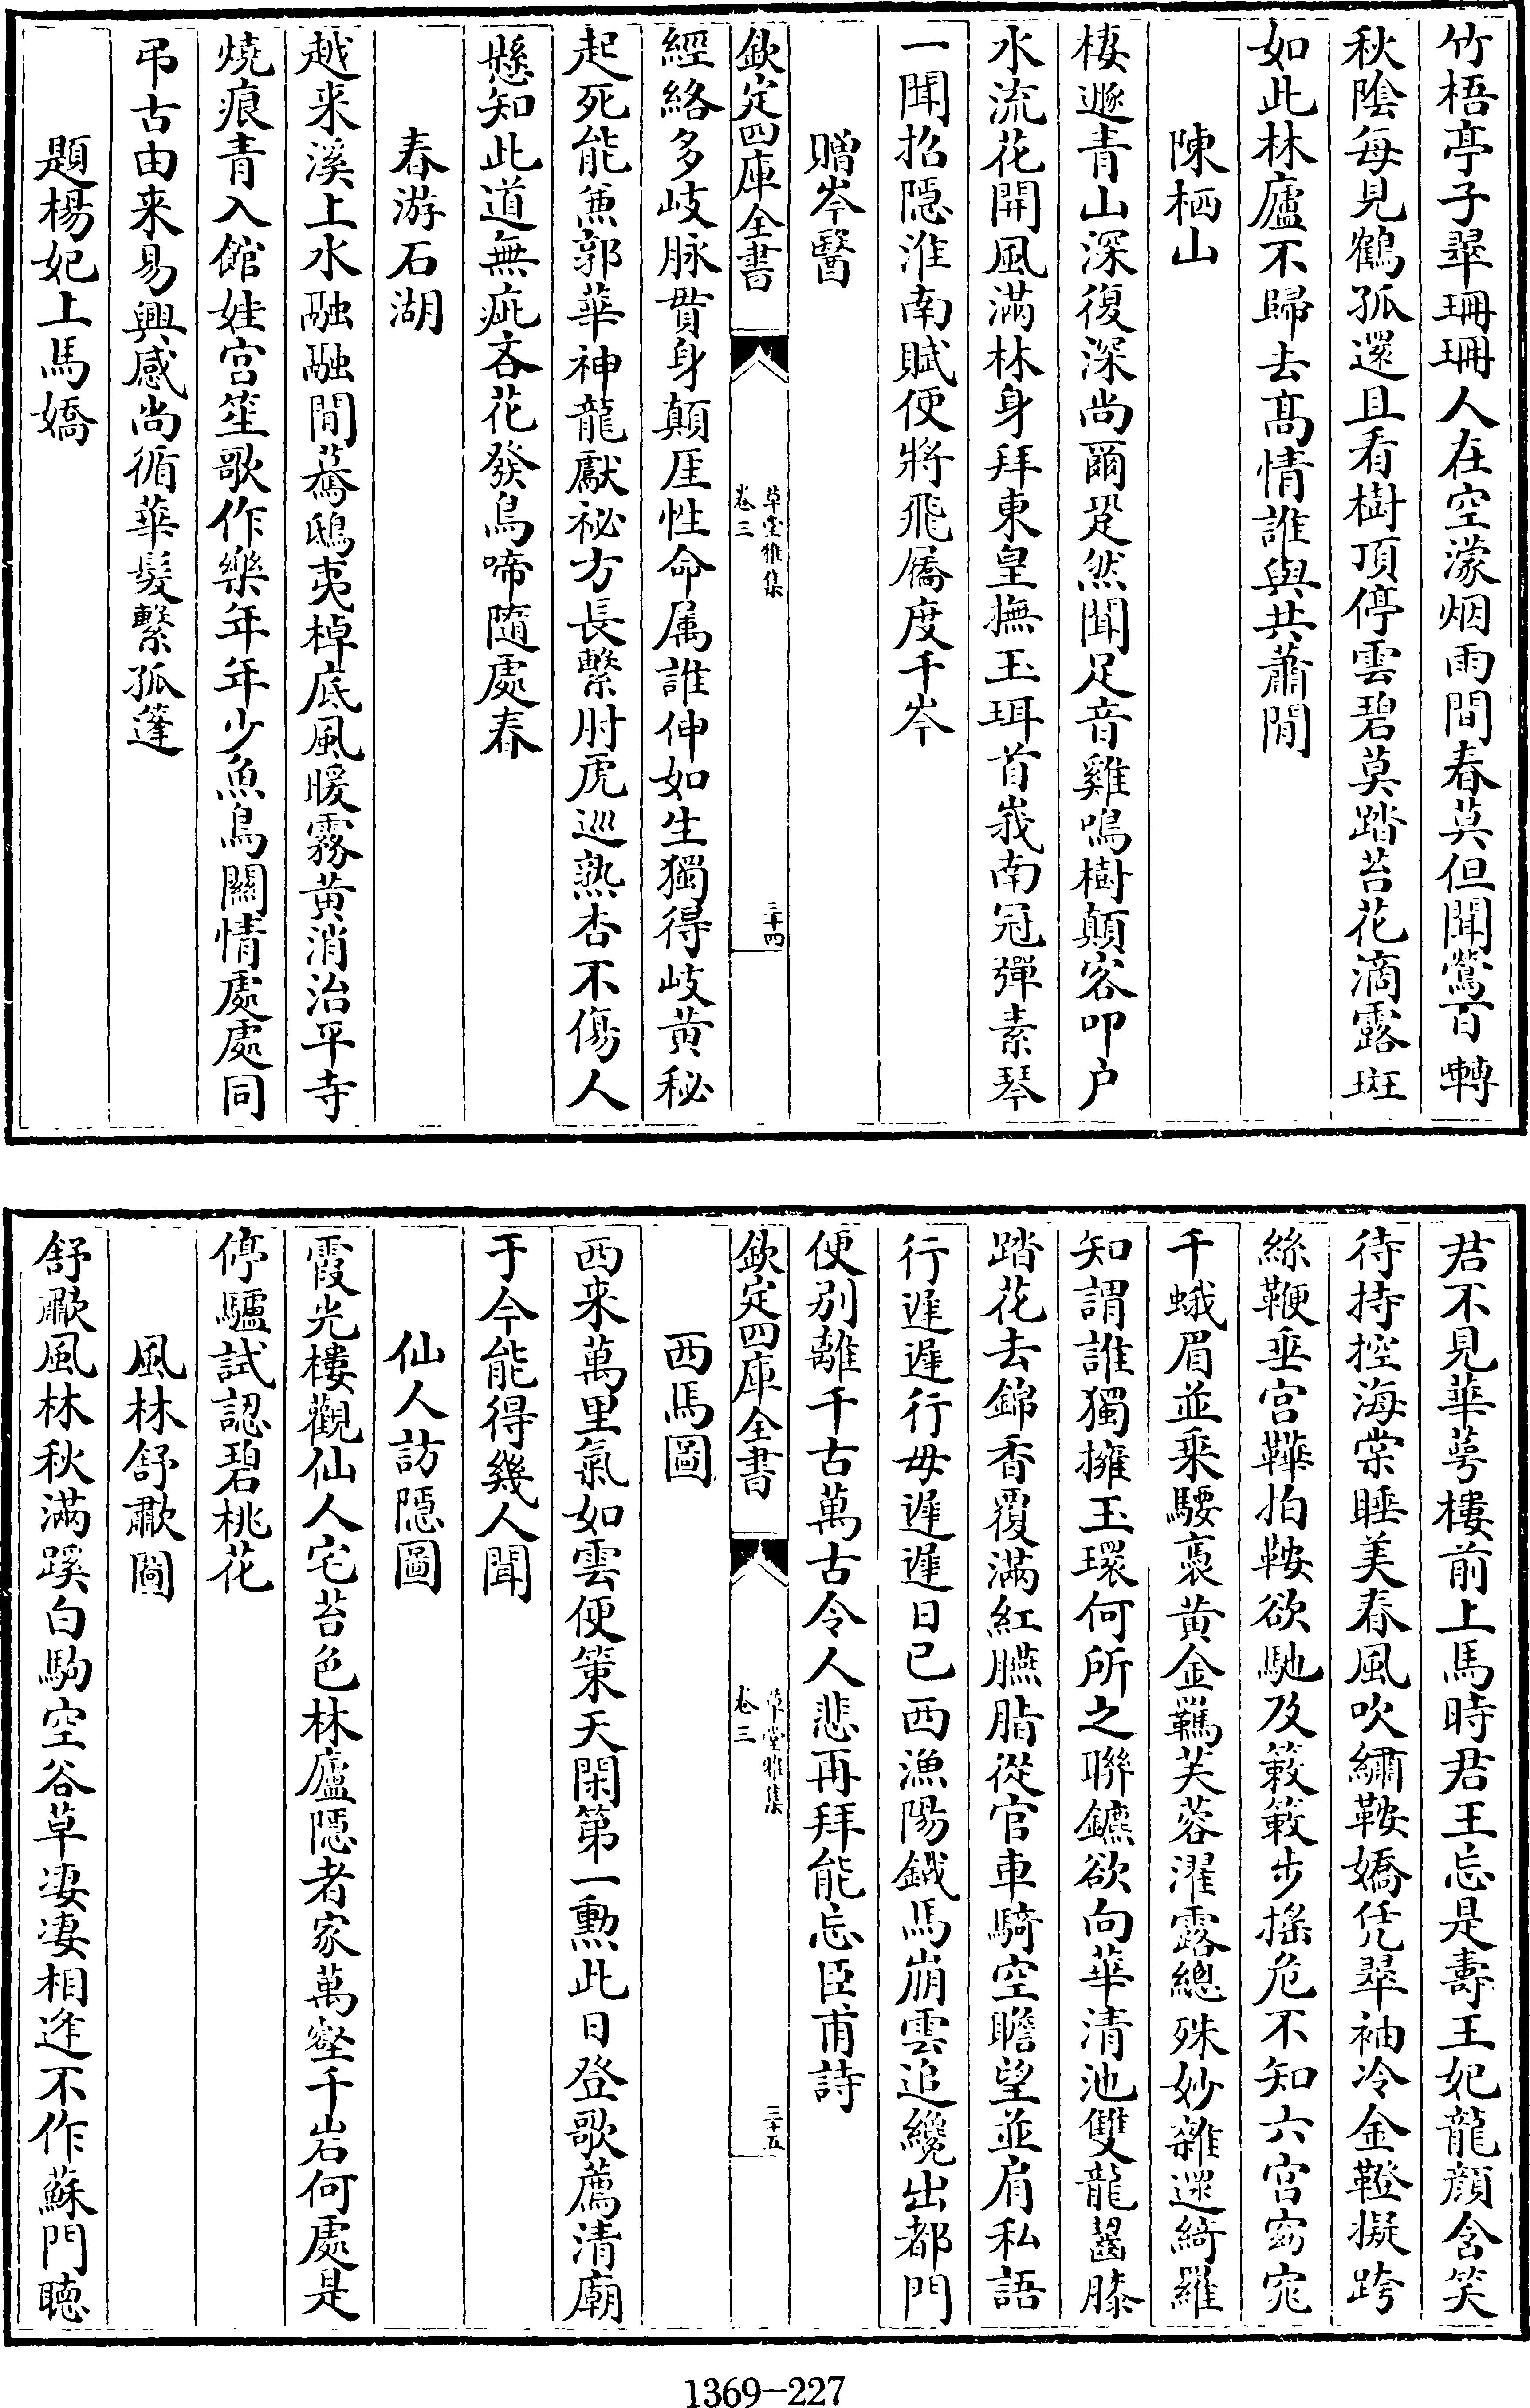 竹梧亭子翠珊珊人在空濛烟雨間春莫但聞鶯百囀
秋陰每見鶴孤還且看樹頂停雲碧莫踏苔花滴露斑
如此林廬不歸去髙情誰與共蕭閒
陳栖山
棲遯青山深復深尚爾跫然聞足音雞鳴樹顛客叩户
水流花開風滿林身拜東皇撫玉珥首峩南冠彈素琴
一聞招隠淮南賦便將飛屩度千岑
贈岑醫
欽定四庫全書
草堂雅集
卷三
三十四
經絡多岐脉貫身顛厓性命属誰伸如生獨得岐黄秘
起死能兼郭華神龍獻祕方長繫肘虎巡熟杏不傷人
懸知此道無疵吝花發鳥啼隨處春
春游石湖
越来溪上水融融閒蕩鴟夷棹底風暖霧黄消治平寺
燒痕青入館娃宫笙歌作樂年年少魚鳥關情處處同
弔古由来易興感尚循華髮繫孤篷
題楊妃上馬嬌
君不見華萼樓前上馬時君王忘是壽王妃龍顔含笑
待持控海棠睡美春風吹繡鞍嬌凭翠袖冷金鞾擬跨
絲鞭垂宫鞾拍鞍欲馳及簌簌步摇危不知六宫窈窕
千蛾眉並乗騕褭黄金羈芙蓉濯露總殊妙雜遝綺羅
知謂誰獨擁玉環何所之聯鑣欲向華清池雙龍齧膝
踏花去錦香覆滿紅臙脂從官車騎空瞻望並肩私語
行遲遲行毋遲遲日已西漁陽鐵馬崩雲追纔出都門
便别離千古萬古令人悲再拜能忘臣甫詩
欽定四庫全書
草堂雅集
卷三
三十五
西馬圖
西来萬里氣如雲便策天閑第一勲此日登歌薦清廟
于今能得幾人聞
仙人訪隠圖
霞光樓觀仙人宅苔色林廬隠者家萬壑千岩何處是
停驢試認碧桃花
風林舒歗圖
舒歗風林秋滿蹊白駒空谷草凄凄相逢不作蘇門聴
1369—227